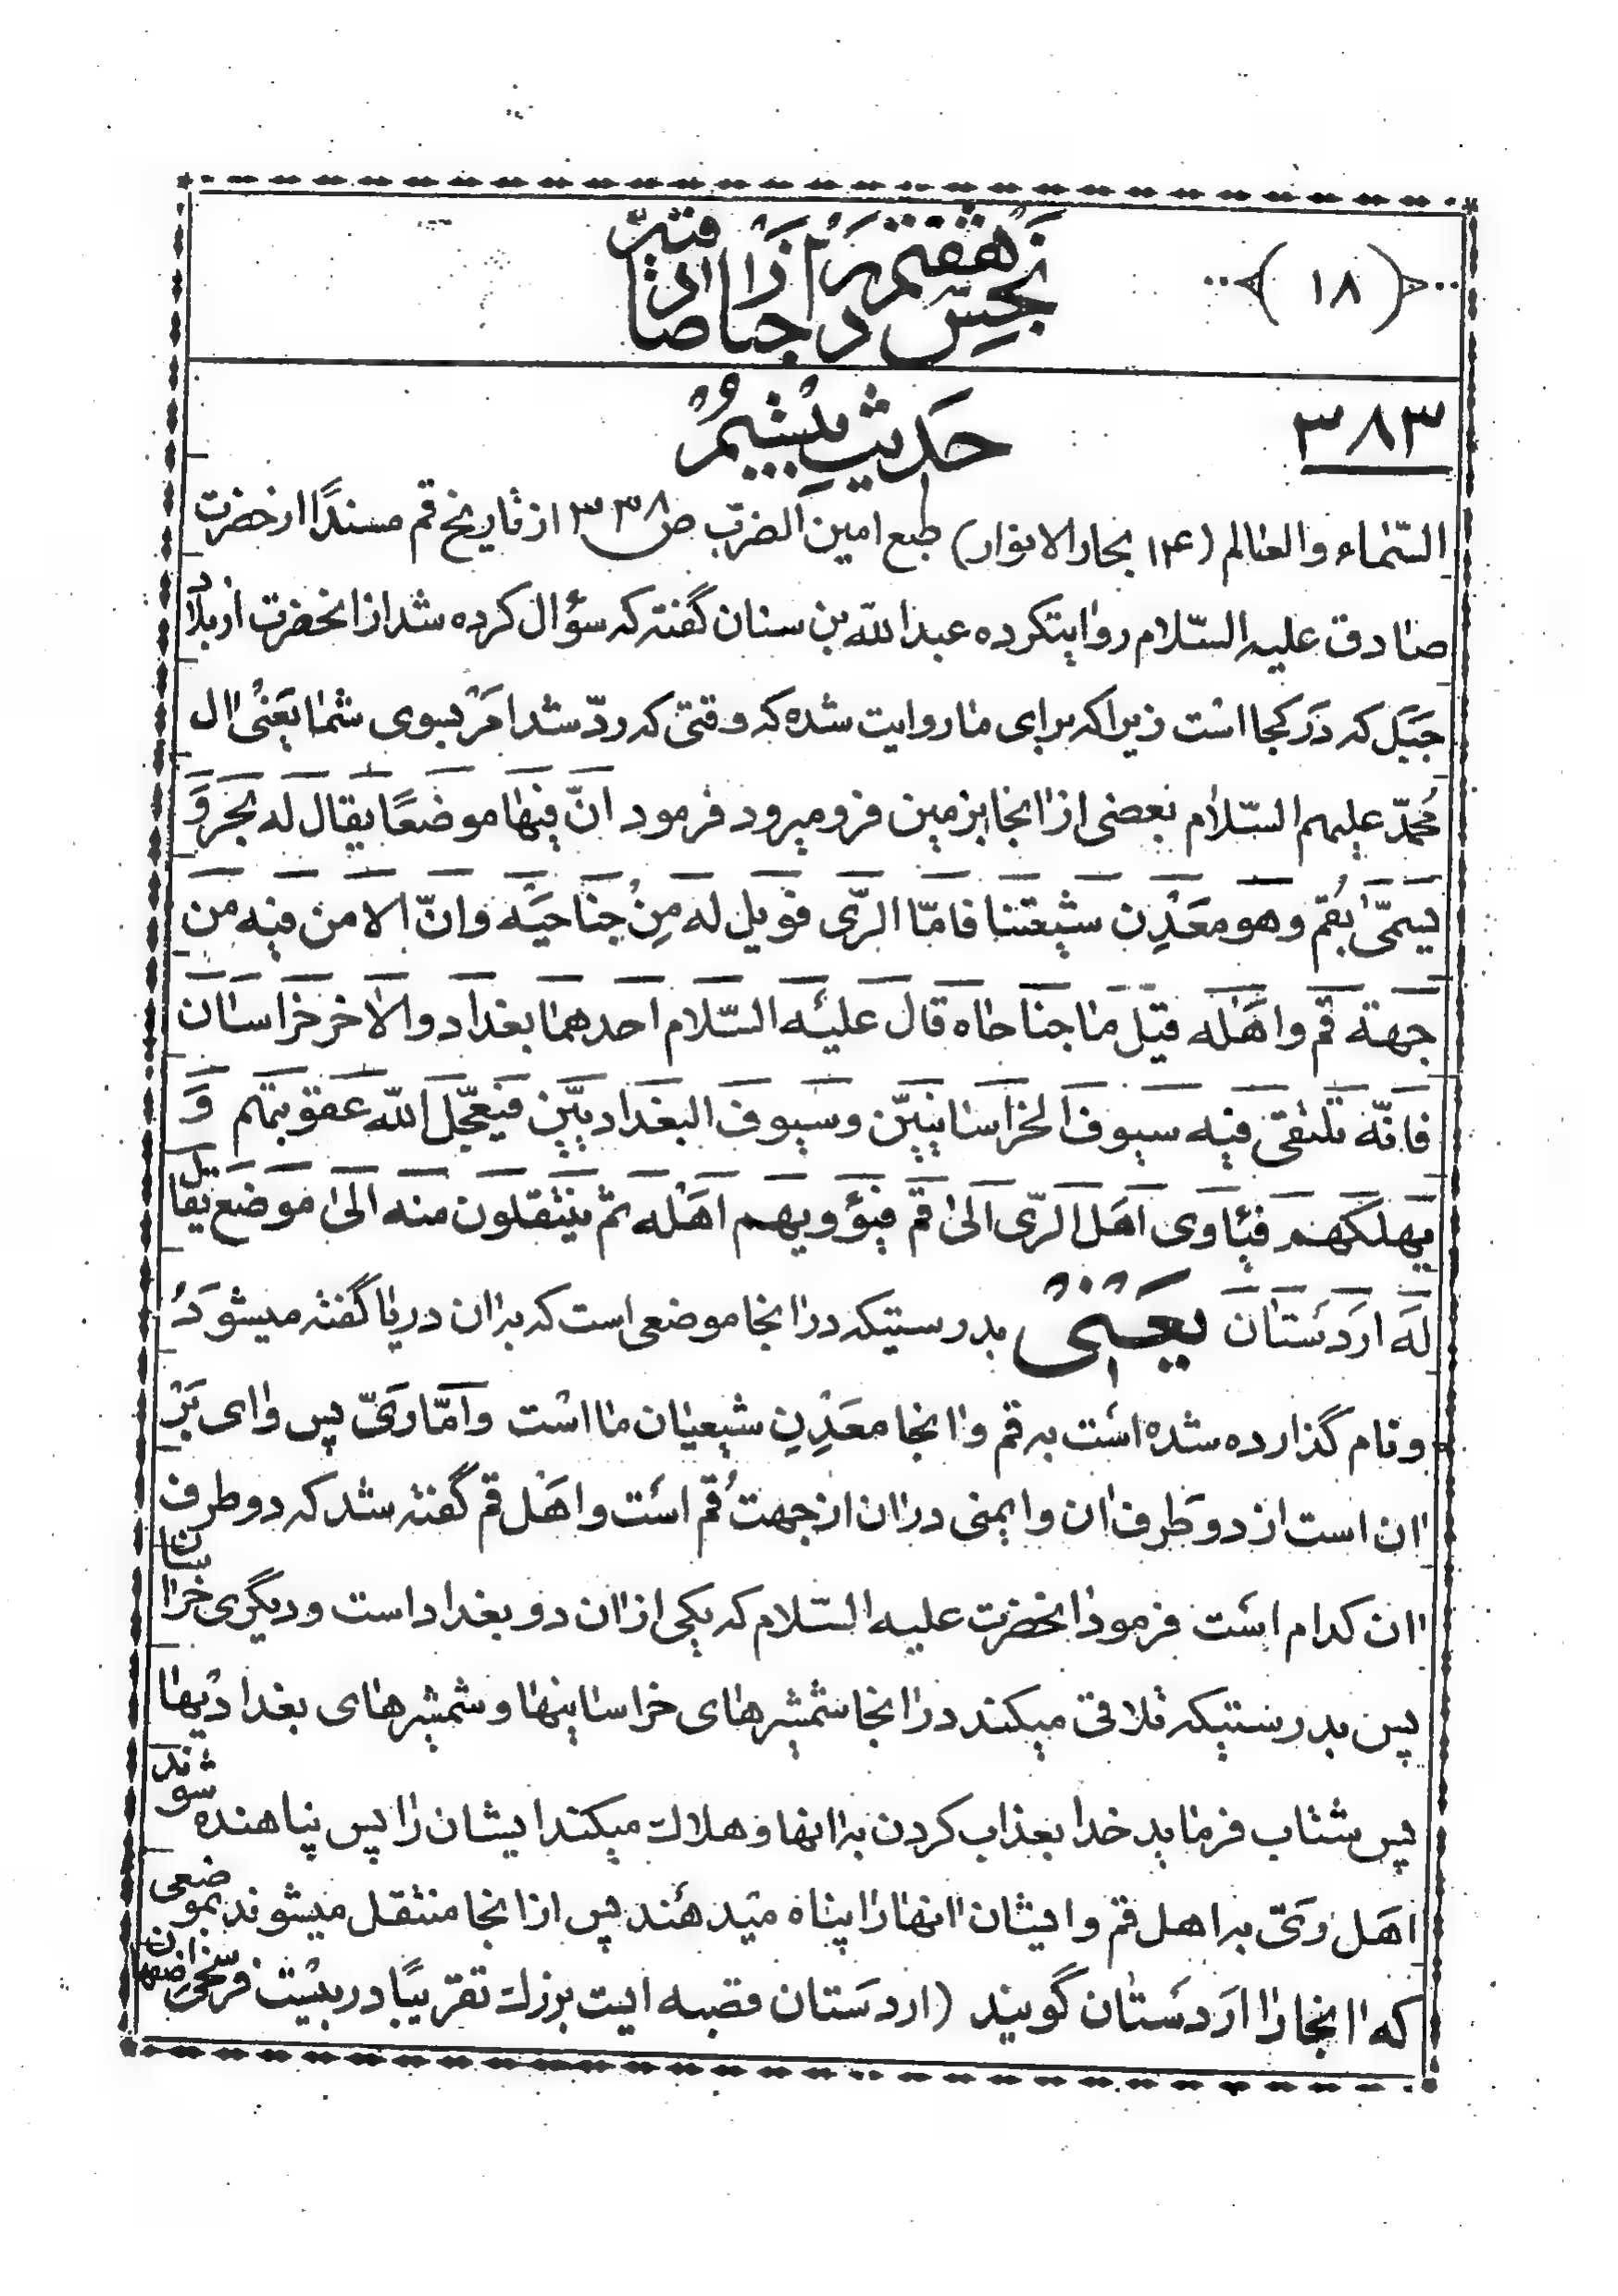 (١٨)
بخش هفتم در اخبار صادقیّه
٣٨٣
حَدیث بیستمُ
السّماء والعالم (١٤ بحار الانوار) طبع امین الضربّ ص ٣٣٨ از تاریخ قم مسندًا از حضرت
صادق علیه السّلام روایتکرده عبدالله بن سنان گفته که سؤال کرده شد از انحضرت از بلاد
جَبَل که دَر کجا است زیرا که برای ما روایت شده که وقتی که ردّ شد امر بسوی شما یَعنی ال
مُحمّد علیهم السّلام بعضی از انجا بزمین فرو میرود فرمود انّ فیها موضعًا یقال له بحر وَ
یسمّیٰ بقُم وهو معَدِن شیعتنا فامّا الرّی فویل له مِن جناحیَه وانّ الامن فیه من
جهة قم واهَله قیل ما جناحاه قال علیه السّلام احدهما بغداد والاخر خراسان
فانّه تلتقی فیه سیوف الخراسانییّن وسیوف البغدادییّن فیعجّل الله عقوبتهم وَ
یهلکهم فیاوی اهَل الرّی الیٰ قم فیؤویهم اهَله ثم ینتقلون منه الیٰ موضع یقال
له اردَستان یعنی بدرستیکه در انجا موضعی است که بان دریا گفته میشوَد
و نام گذارده شده است به قم و انجا معَدِنِ شیعیان ما است وامّا ریّ پس وای بَر
ان است از دو طَرف ان و ایمنی در ان از جهت قُم است و اهَل قم گفته شد که دو طرف
ان کدام است فرمود انحضرت علیه السّلام که یکی از ان دو بغداد است و دیگری خراسان
پس بدرستیکه تلاقی میکند در انجا شمشیرهای خراسانیها و شمشیرهای بغدادیها
پس شتاب فرماید خدا بعذاب کردن به انها و هلاك میکند ایشان را پس پناهنده شوند
اهَل ریّ به اهل قم و ایشان انها را پناه میدهَند پس از انجا منتقل میشوند بموضعی
که انجا را اردَستان گویند (اردَستان قصبه ایست بزرك تقریبًا در بیست فرسخی اصفهان